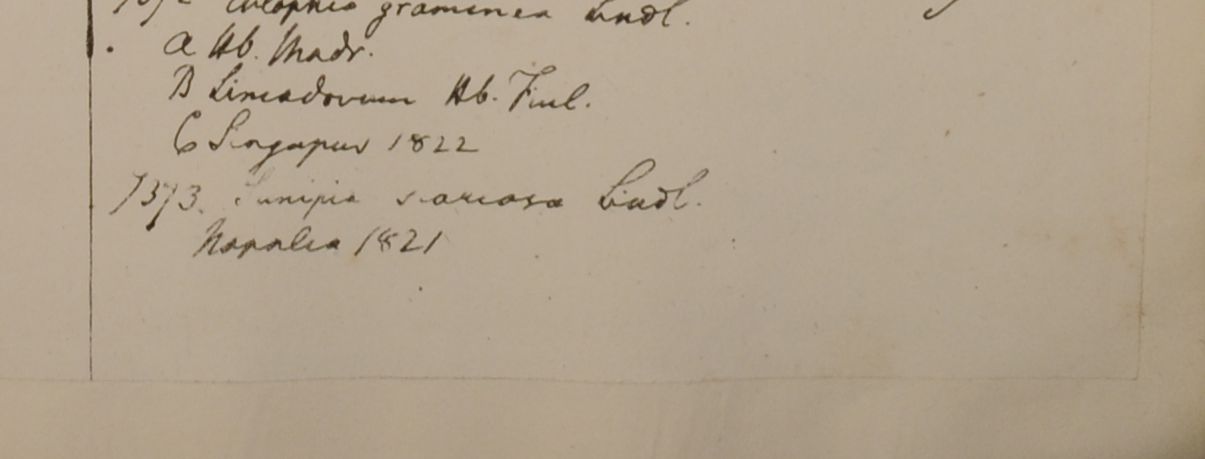 7372 Eulophia graminea Lindl.
a Hb. Madr.
B Limodorum Hb. Finl.
C Singapur 1822
7373. Sunipia scariosa Lindl.
Napalia 1821